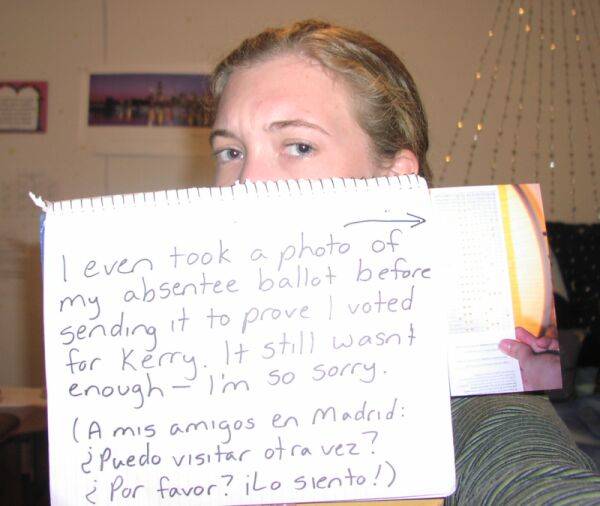 I even took a photo of
my absentee ballot before
sending it to prove I voted
for Kerry. It still wasnt
enough — I'm so sorry.
(A mis amigos en Madrid:
¿Puedo visitar otra vez?
¿Por favor? ¡Lo siento!)